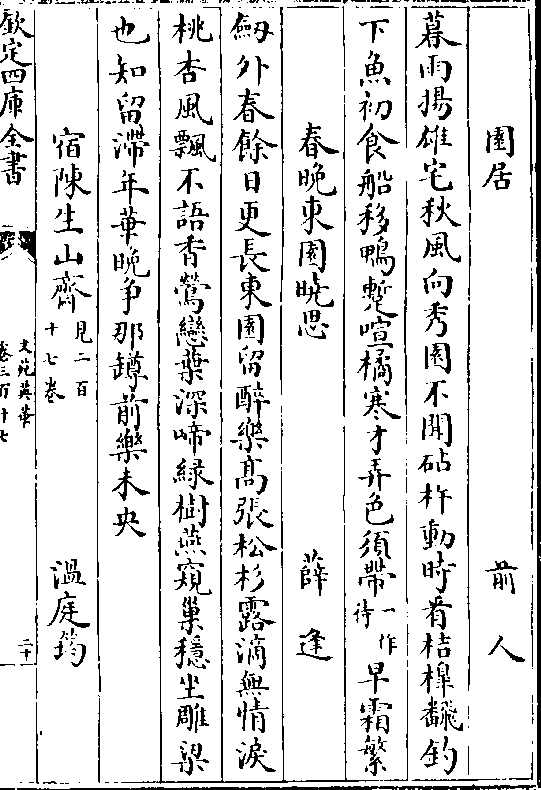 園居　前人
暮雨揚雄宅秋風向秀園不聞砧杵動時看桔橰飜釣
下魚初食船移鴨蹔喧橘寒才弄色須帶一作待早霜繁
春晚東園曉思　薛逢
劔外春餘日更長東園留醉樂髙張松杉露滴無情淚
桃杏風飄不語香鶯戀葉深啼緑樹燕窺巢穏坐雕梁
也知留滯年華晚争那罇前樂未央
宿陳生山齋見二百十七卷　溫庭筠
欽定四庫全書
文苑英華
卷三百十七
二十